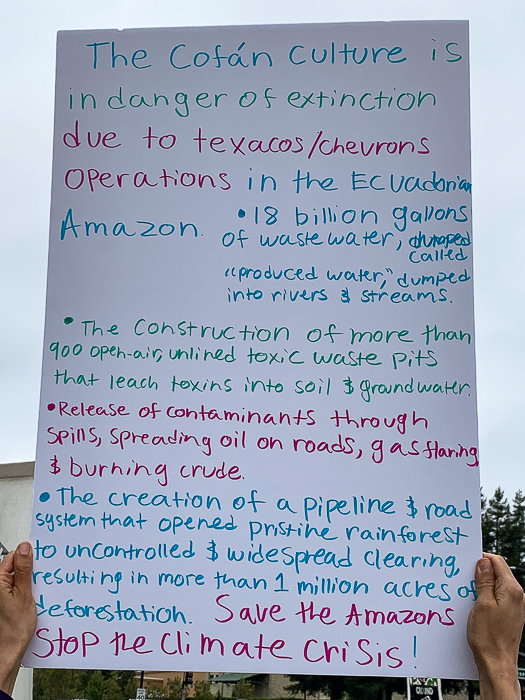 The Cofán Culture is
in danger of extinction
due to texacos/chevrons
operations in the Ecuadorian
Amazon.
• 18 billion gallons
of waste water, dumped
called
"produced water," dumped
into rivers & streams.
• The construction of more than
900 open-air, unlined toxic waste pits
that leach toxins into soil & groundwater.
• Release of contaminants through
spills, spreading oil on roads, gas flaring
& burning crude.
• The creation of a pipeline & road
system that opened pristine rainforest
to uncontrolled & widespread clearing,
resulting in more than 1 million acres of
deforestation. Save the Amazons
Stop the Climate Crisis!